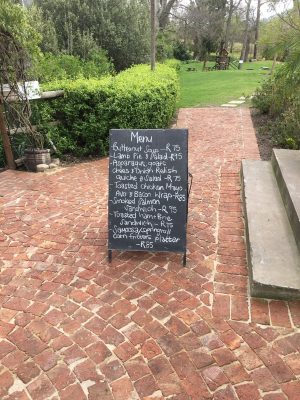 Menu
- Butternut Soup - R75
- Lamb Pie & Salad - R95
- Asparagus, goats
cheese & Onion Relish
quiche & Salad - R75
- Toasted chicken Mayo
Avo & Bacon Wrap - R85
- Smoked Salmon
Sandwich - R95
- Toasted ham & Brie
Sandwich - R75
- Samoosa, springroll
corn fritters Platter
- R85